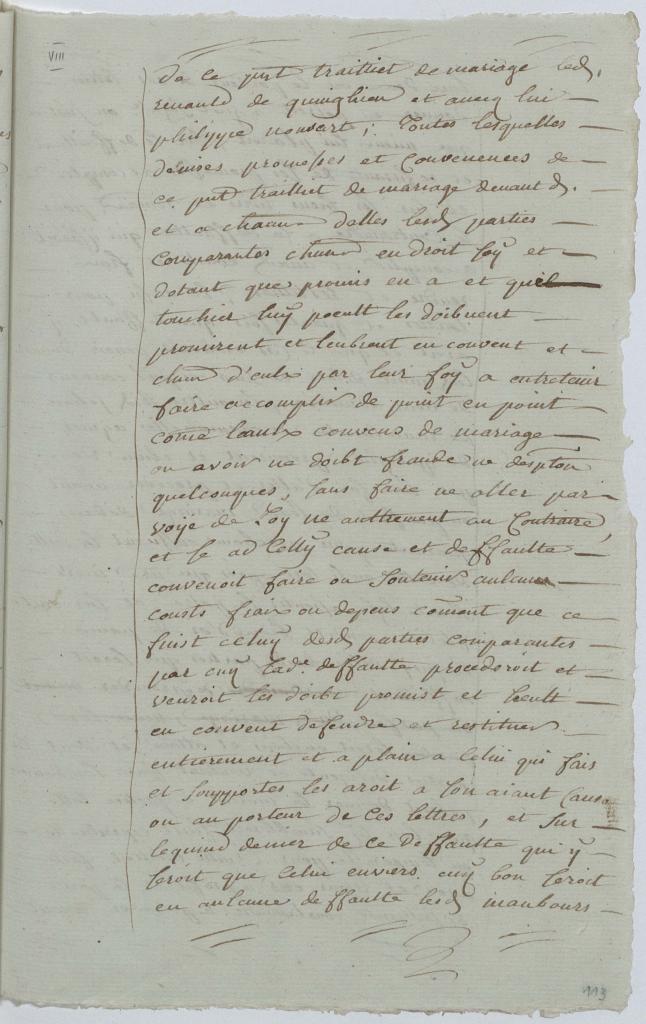 VIII
de ce pnt traittiet de mariage led.
renauld de quinghien et avecq lui
philippe nonvart ; Toutes lesquelles
devises promesses et Convenences de
ce pnt traittiet de mariage devant d.
et a chacune delles lesd parties
comparantes chune endroit soy et
dotant que promis en a et quil
touchier luy poeult les doibvent
promirent et leubrent en convent et
chun d'eulx par leur foy a entretenir
faire accomplir de point en point
comé leaulx convens de mariage
ou avoir ne doibt fraude ne
quelconques, sans faire ne aller par
voye de Loy ne aultrement au Contraire,
et se ad celluy cause et deffaulte
convenoit faire ou soutenir aulcuns
cousts fraix ou depens coment que ce
fuist celuy desd parties comparantes
par cuy lade deffaulte procederoit et
venroit les doibt promist et heult
en convent defendre et restituer
entierement et a plain a Celui qui fais
et soupportes les aroit a son aiant Cause
ou au porteur de Ces lettres, et sur
lequind denier de ce Deffaulte qui y
seroit que Celui enviers cuy bon seroit
en aulcune deffaulte lesd mainbours
113